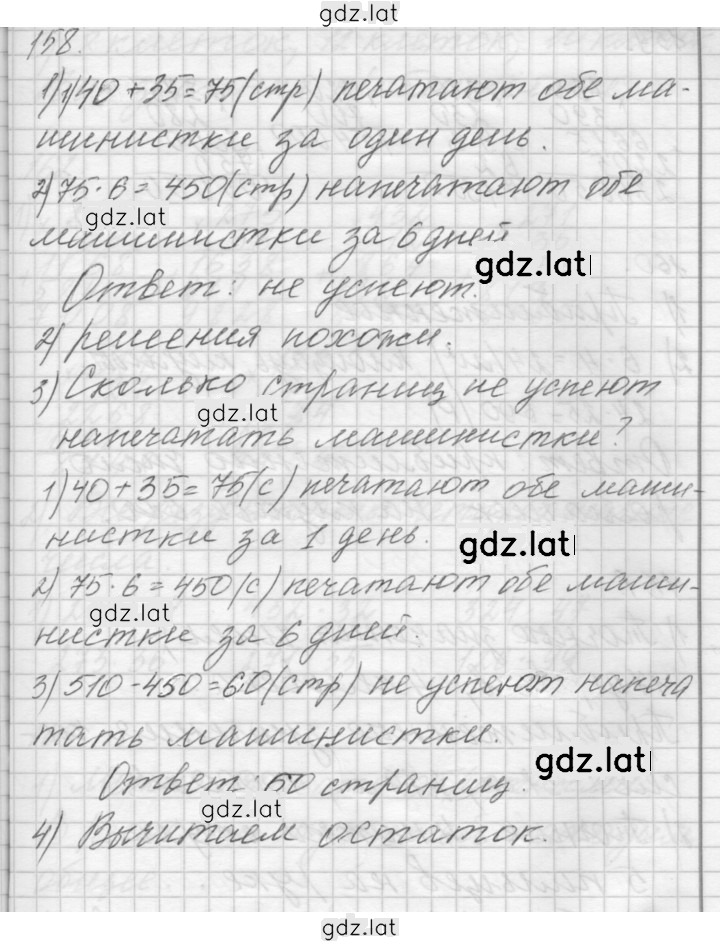 gdz.lat
158.
1) 1) 40 + 35 = 75 (стр) печатают обе ма-
шинистки за один день.
2) 75 · 6 = 450 (стр) напечатают обе
gdz.lat
машинистки за 6 дней
gdz.lat
Ответ: не успеют.
2) решения похожи.
3) Сколько страниц не успеют
gdz.lat
напечатать машинистки?
1) 40 + 35 = 75 (с) печатают обе маши-
нистки за 1 день.
gdz.lat
2) 75 · 6 = 450 (с) печатают обе маши-
gdz.lat
нистки за 6 дней.
3) 510 - 450 = 60 (стр) не успеют напеча
тать машинистки.
gdz.lat
Ответ: 50 страниц.
gdz.lat
4) Вычитаем остаток.
gdz.lat